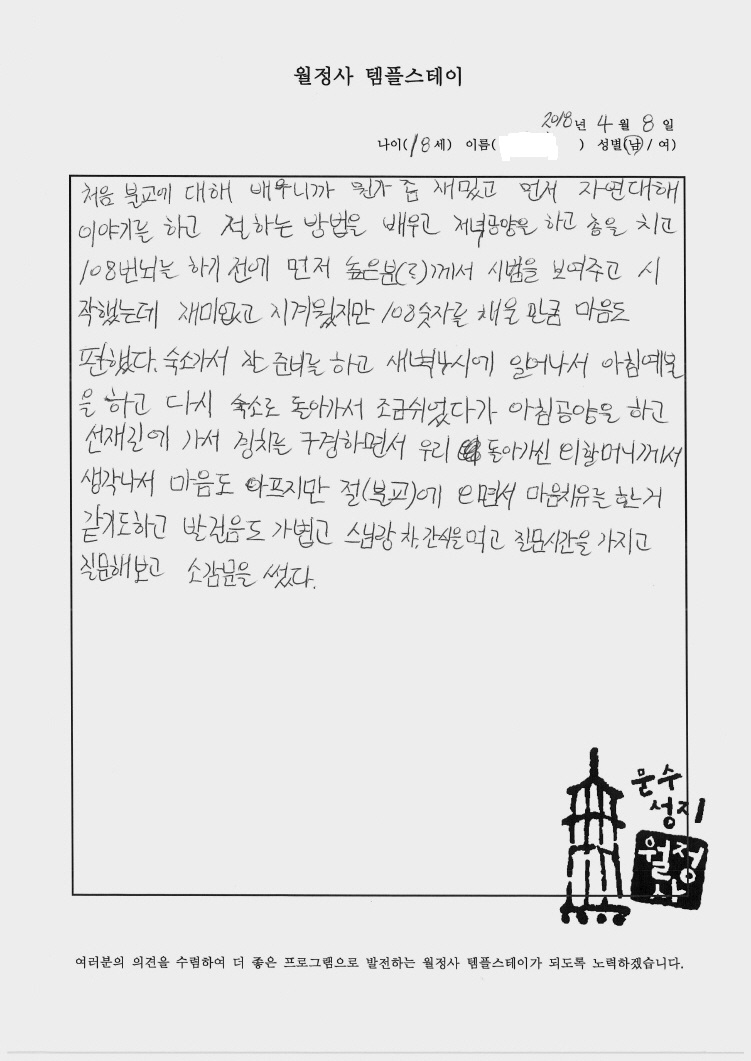 월정사 템플스테이
2018년 4월 8일
나이(18세) 이름( ) 성별(남 / 여)
처음 불교에 대해 배우니까 뭔가 좀 재밌고 먼저 자연대해
이야기를 하고 절하는 방법을 배우고 저녁공양을 하고 종을 치고
108번뇌는 하기 전에 먼저 높은분(?)께서 시범을 보여주고 시
작했는데 재미있고 지겨웠지만 108숫자를 채울 만큼 마음도
편했다. 숙소가서 잘 준비를 하고 새벽4시에 일어나서 아침예불
을 하고 다시 숙소로 돌아가서 조금쉬었다가 아침공양을 하고
선재길에 가서 경치를 구경하면서 우리 돌아가신 외할머니께서
생각나서 마음도 아프지만 절(불교)에 오면서 마음치유를 한거
같기도하고 발걸음도 가볍고 스님랑 차,간식을먹고 질문시간을 가지고
질문해보고 소감문을 썼다.
문수
성지
월정
사
여러분의 의견을 수렴하여 더 좋은 프로그램으로 발전하는 월정사 템플스테이가 되도록 노력하겠습니다.